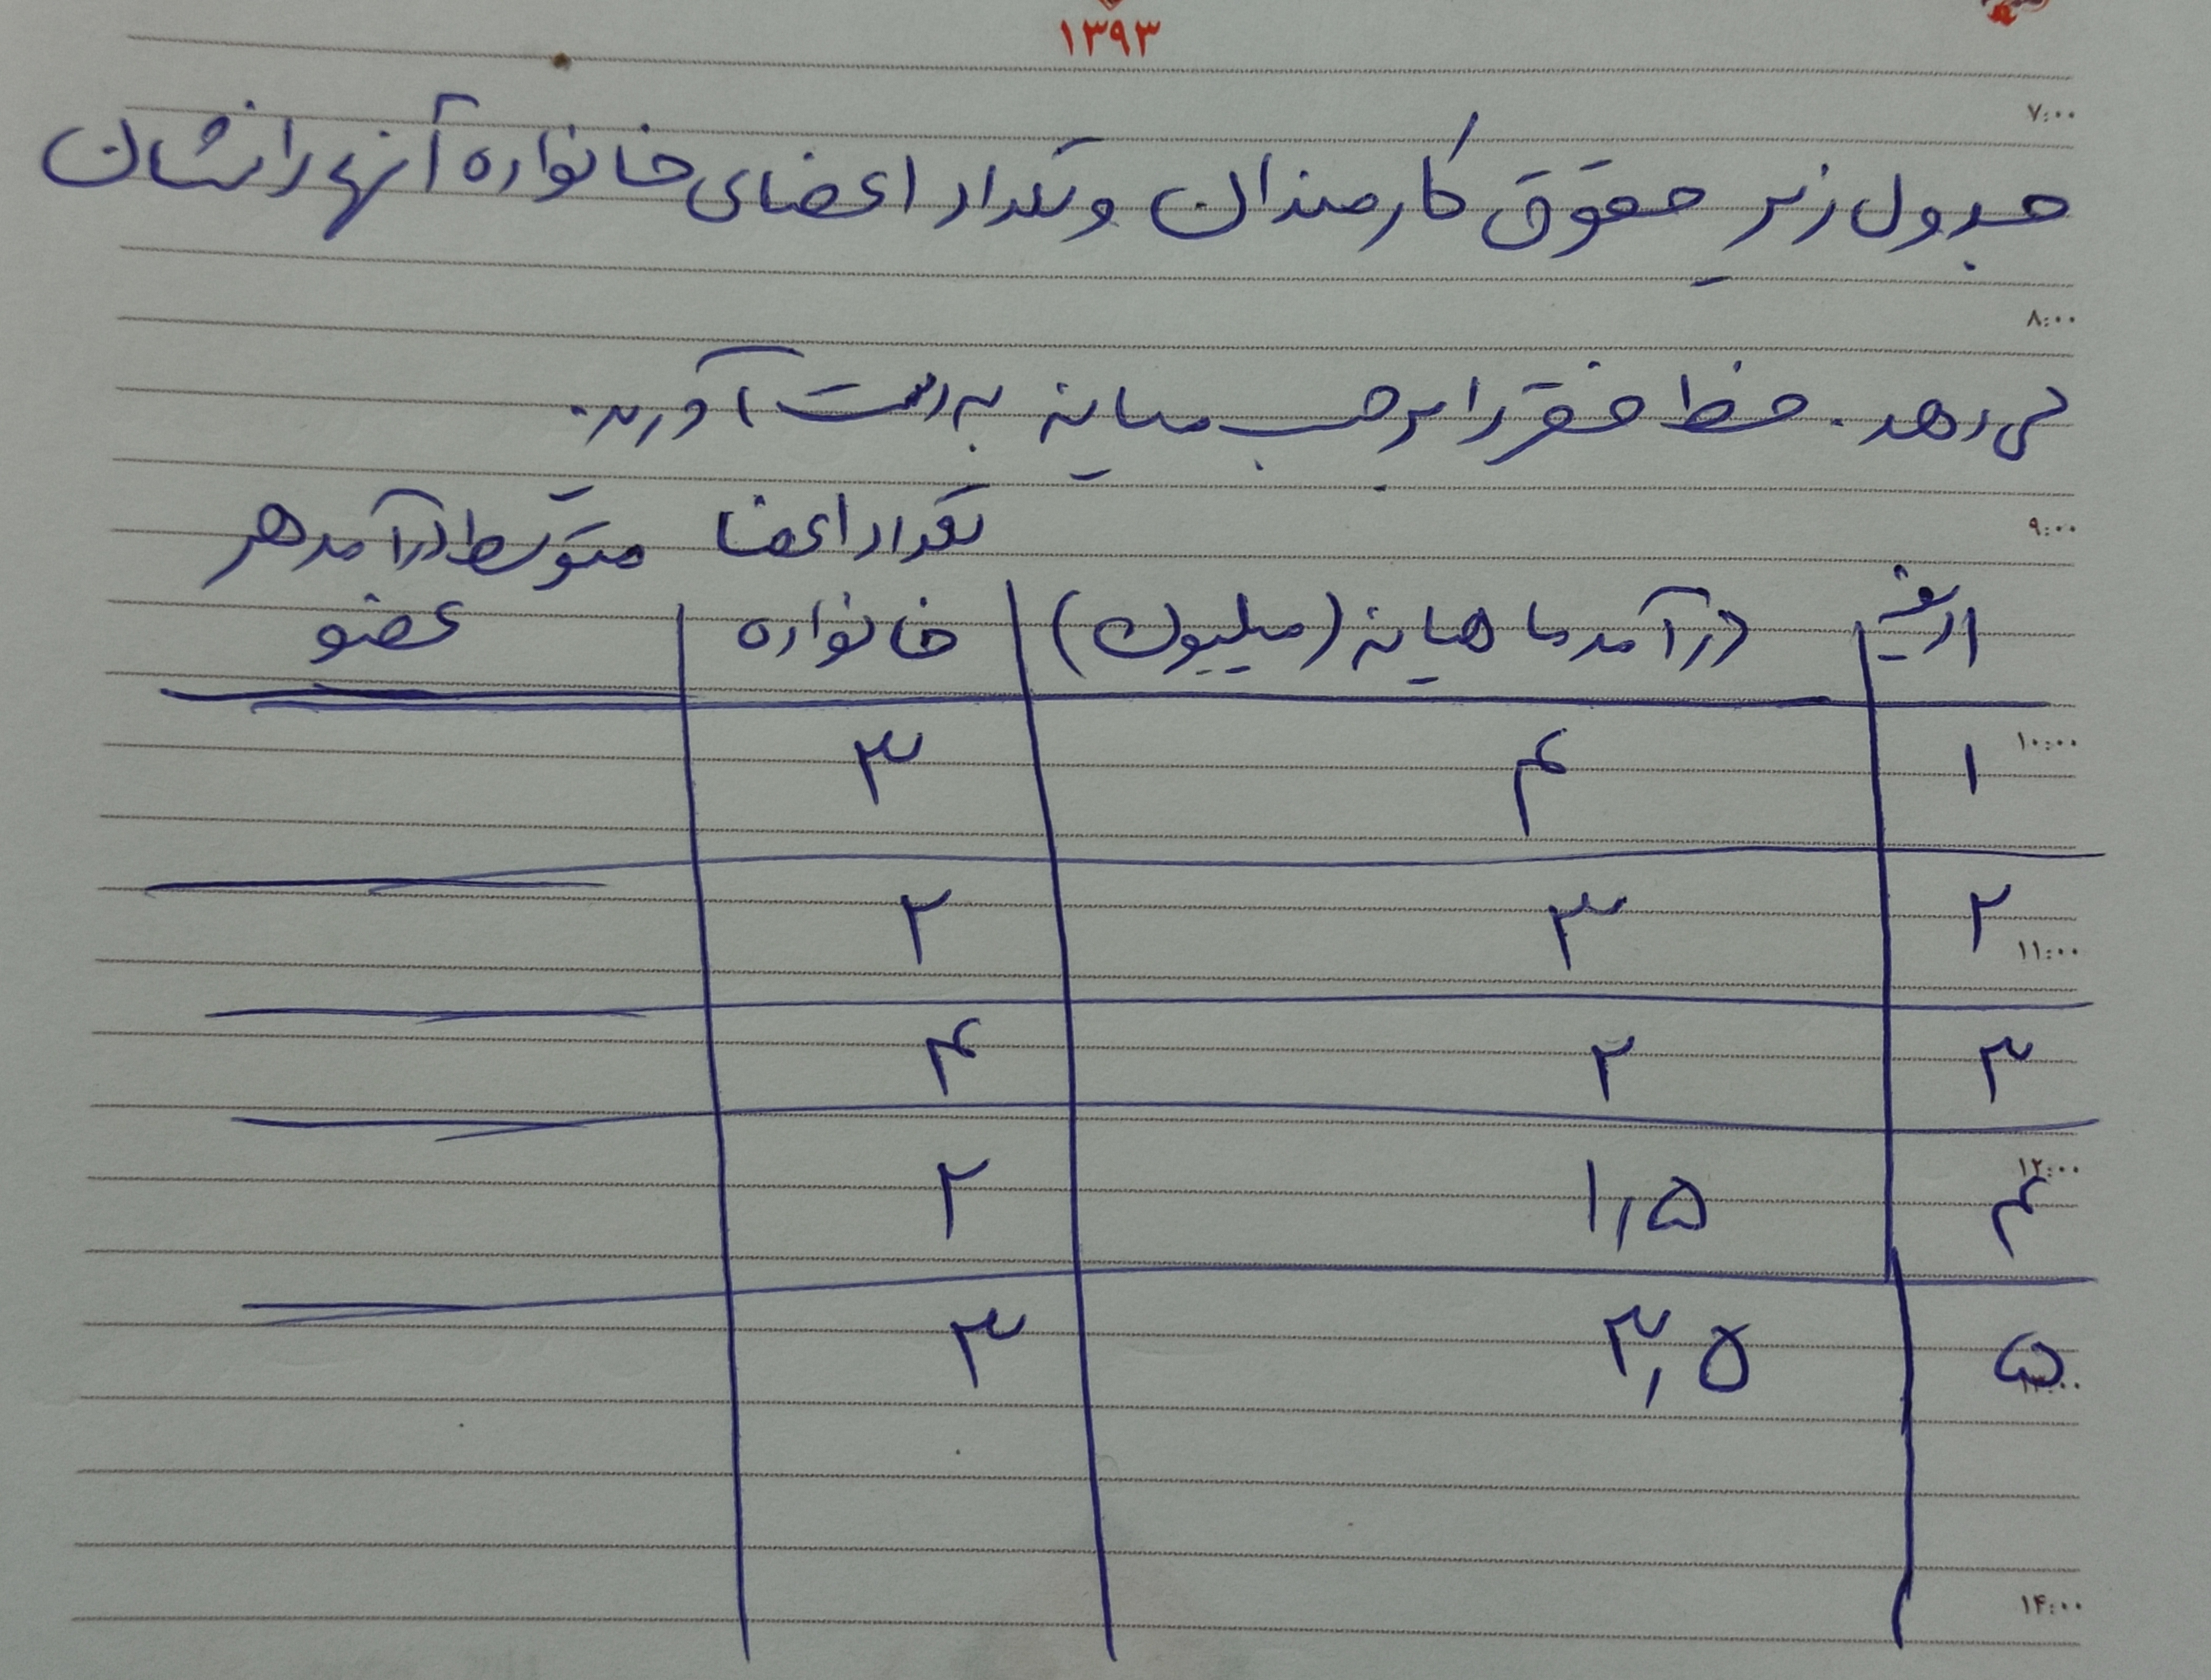 ۱۳۹۳
۷:۰۰
جدول زیر حقوق کارمندان و تعداد اعضای خانواده آنها را نشان
۸:۰۰
می‌دهد. خط فقر را بر حسب میانه به دست آورید.
۹:۰۰
تعداد اعضا متوسط درآمد هر
ردیف درآمد ماهیانه (میلیون) خانواده عضو
۱۰:۰۰
۱ ۴ ۳
۲ ۳ ۲
۱۱:۰۰
۳ ۲ ۴
۱۲:۰۰
۴ ۱,۵ ۲
۵ ۳,۵ ۳
۱۳:۰۰
۱۴:۰۰